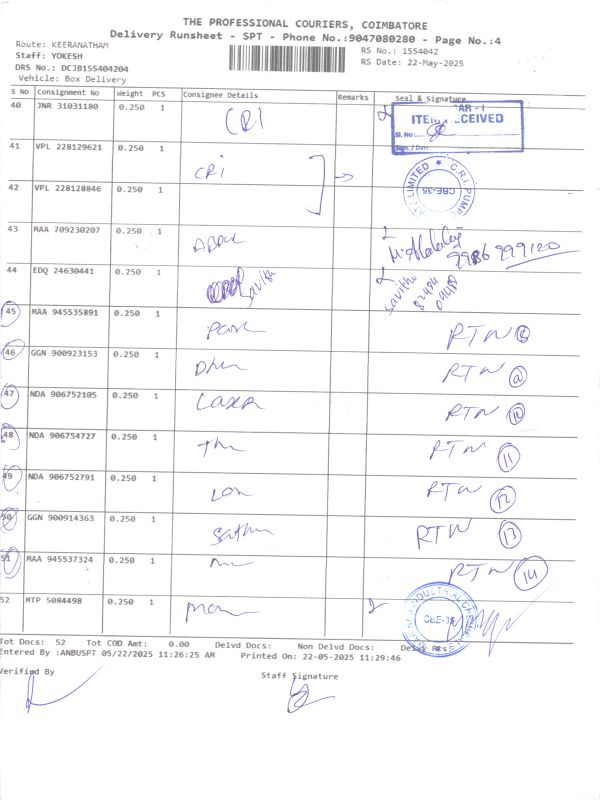 THE PROFESSIONAL COURIERS, COIMBATORE
Delivery Runsheet - SPT - Phone No.:9047080280 - Page No.:4
Route: KEERANATHAM
Staff: YOKESH
DRS No.: DCJB155404204
Vehicle: Box Delivery
RS No.: 1554042
RS Date: 22-May-2025
S No Consignment No Weight PCS Consignee Details Remarks Seal & Signature
40 JNR 31031180 0.250 1 CRI
ITEM RECEIVED
Sl. No:
Sign./ Date
41 VPL 228129621 0.250 1 CRI
42 VPL 228128846 0.250 1
LIMITED ★ C.R.I. PUMP
CBE-35
43 MAA 709230207 0.250 1 9986 999120
44 EDQ 24630441 0.250 1 Savitha Savitha
45 MAA 945535891 0.250 1 RTN 8
46 GGN 900923153 0.250 1 RTN
47 NDA 906752105 0.250 1 RTN 10
48 NDA 906754727 0.250 1 RTN 11
49 NDA 906752791 0.250 1 RTN 12
50 GGN 900914363 0.250 1 RTN 13
51 MAA 945537324 0.250 1 RTN 14
52 MTP 5084498 0.250 1
CBE-35
Tot Docs: 52 Tot COD Amt: 0.00 Delvd Docs: Non Delvd Docs:
Entered By :ANBUSPT 05/22/2025 11:26:25 AM Printed On: 22-05-2025 11:29:46
Verified By Staff Signature